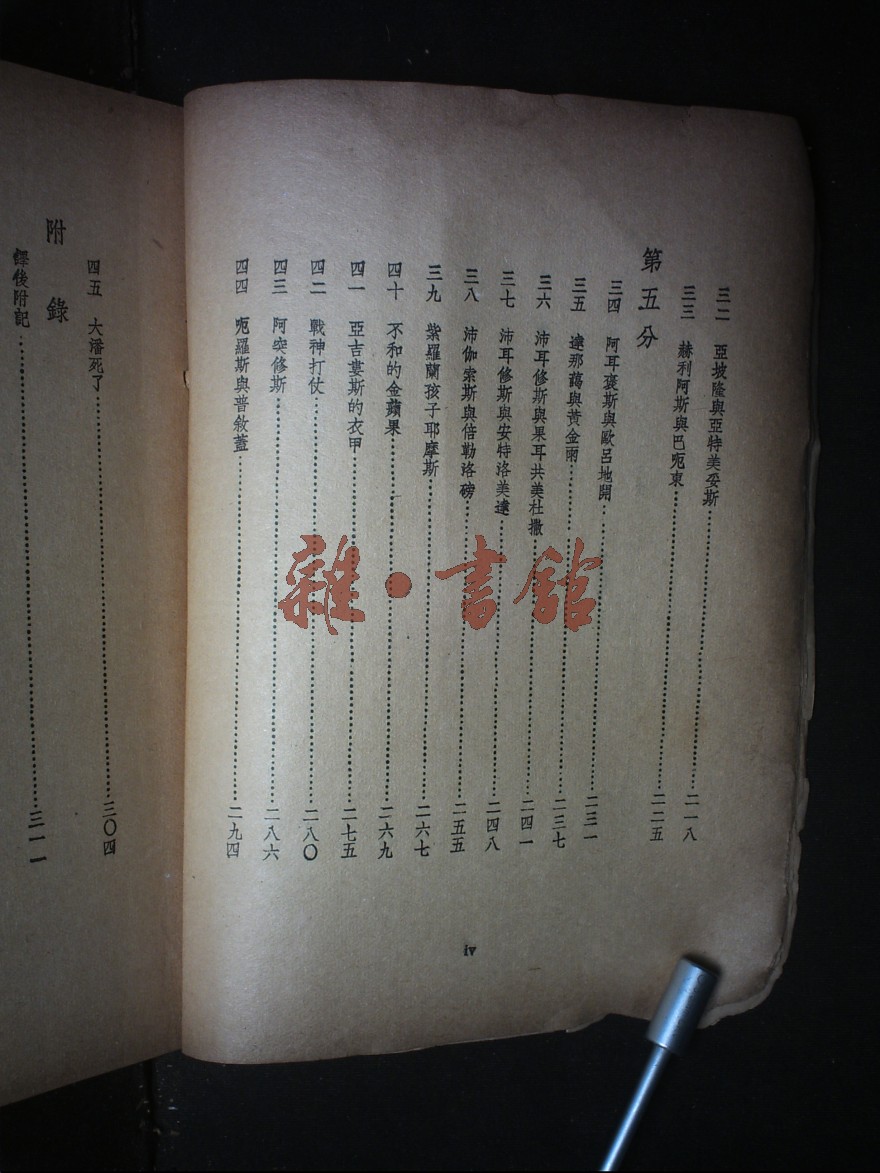 三二 亞坡隆與亞特美妥斯……二一八
三三 赫利阿斯與巴呃東……二二五
第五分
三四 阿耳褒斯與歐呂地開……二三一
三五 達那藹與黃金雨……二三七
三六 沛耳修斯與果耳共美杜撒……二四一
三七 沛耳修斯與安特洛美達……二四八
三八 沛伽索斯與倍勒洛磅……二五五
三九 紫羅蘭孩子耶摩斯……二六七
四十 不和的金蘋果……二六九
四一 亞吉婁斯的衣甲……二七五
四二 戰神打仗……二八〇
四三 阿突修斯……二八六
四四 呃羅斯與普敘蓋……二九四
iv
四五 大潘死了……三〇四
附錄
譯後附記……三一一
雜·書館